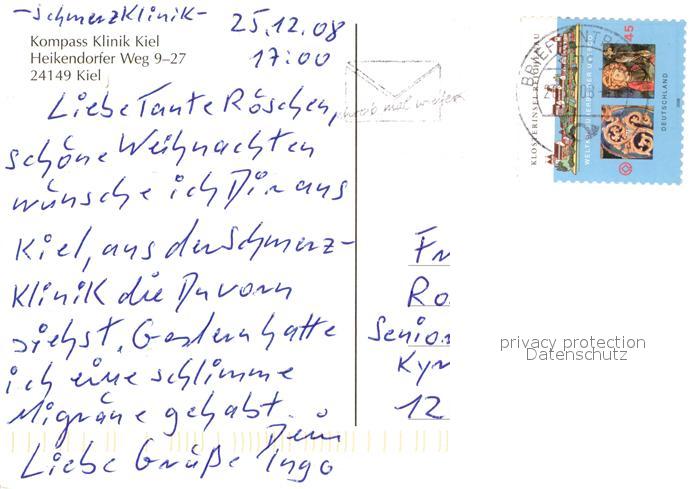 -Schmerzklinik-
25.12.08
17:00
Kompass Klinik Kiel
Heikendorfer Weg 9–27
24149 Kiel
Liebe Tante Röschen,
schöne Weihnachten
wünsche ich Dir aus
Kiel, aus der Schmerz-
klinik die Du vorn
siehst. Gestern hatte
ich eine schlimme
Migräne gehabt.
Liebe Grüße Dein Ingo
Fr
Ro
Senior
Kyr
12
KLOSTERINSEL REICHENAU
WELTKULTURERBE DER UNESCO
45
DEUTSCHLAND
BRIEFZENTR
privacy protection
Datenschutz